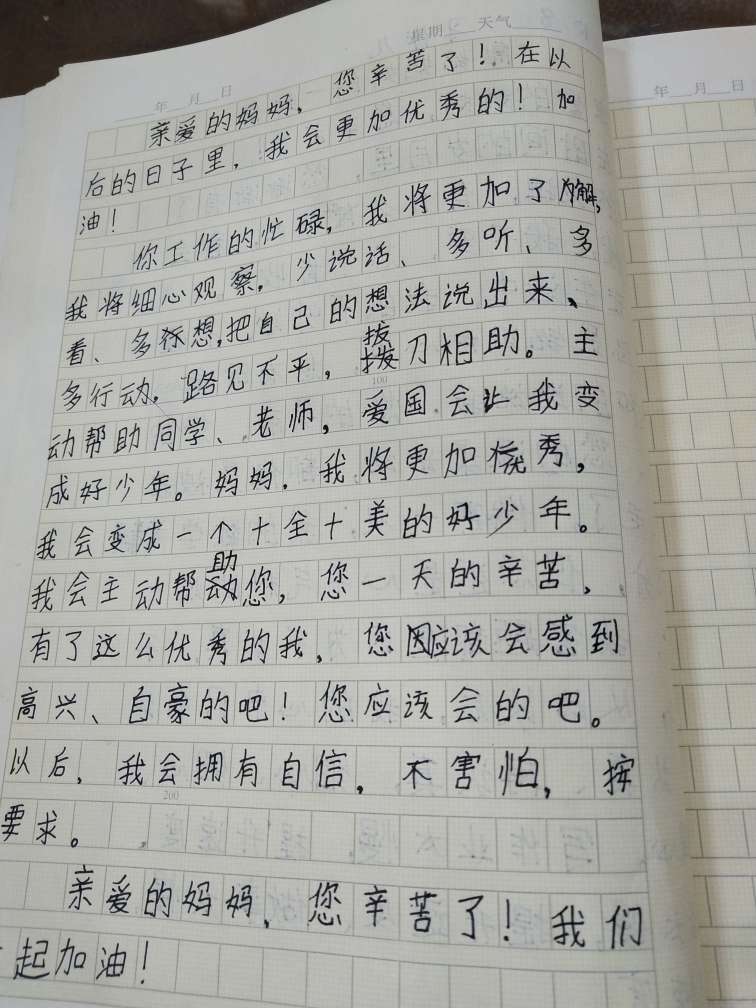 星期 天气
年 月 日
年 月 日
亲爱的妈妈，您辛苦了！在以
后的日子里，我会更加优秀的！加
油！
你工作的忙碌，我将更加了解，
我将细心观察，少说话、多听、多
看、多想，把自己的想法说出来、
多行动。路见不平，拔刀相助。主
100
动帮助同学、老师，爱国会让我变
成好少年。妈妈，我将更加优秀，
我会变成一个十全十美的好少年。
我会主动帮助您，您一天的辛苦，
有了这么优秀的我，您应该会感到
高兴、自豪的吧！您应该会的吧。
以后，我会拥有自信，不害怕，按
200
要求。
亲爱的妈妈，您辛苦了！我们
起加油！